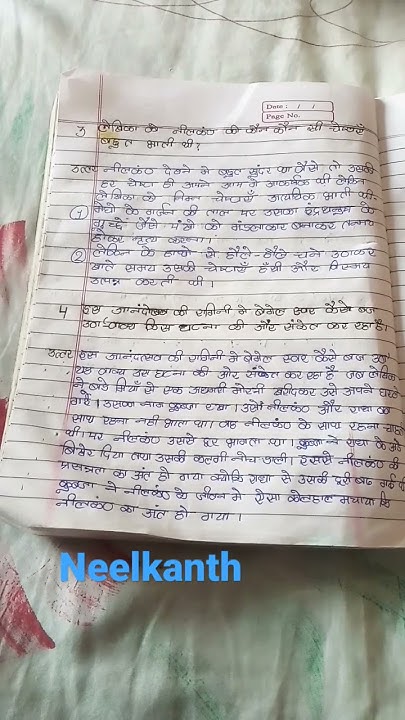 Date : / /
Page No.
3 लेखिका को नीलकंठ की कौन कौन सी चेष्टाएँ
बहुत भाती थी ?
उत्तर नीलकंठ देखने में बहुत सुंदर था वैसे तो उसकी
हर चेष्टा ही अपने आप में आकर्षक थी लेकिन
लेखिका को निम्न चेष्टाएँ अत्यधिक भाती थी
① मेघों के गर्जन की ताल पर उसका इंद्रधनुष के
गुच्छे जैसे पंखों को मंडलाकार बनाकर तन्मय
होकर नृत्य करना।
② लेखिका के हाथों से हौले हौले चने उठाकर
खाते समय उसकी चेष्टाएँ हँसी और विस्मय
उत्पन्न करती थी।
4 इस आनंदोत्सव की रागिनी में बेमेल स्वर कैसे बज
उठा वाक्य किस घटना की ओर संकेत कर रहा है।
उत्तर इस आनंदोत्सव की रागिनी में बेमेल स्वर कैसे बज उठा
यह वाक्य उस घटना की ओर संकेत कर रहा है जब लेखिका
ने बड़े मियाँ से एक अधमरी मोरनी खरीदकर उसे अपने घर ले
गई। उसका नाम कुब्जा रखा। उसे नीलकंठ और राधा का
साथ रहना नहीं भाता था। वह नीलकंठ के साथ रहना चाहती
थी पर नीलकंठ उससे दूर भागता था। कुब्जा ने राधा के अंडे
बिखेर दिया तथा उसकी कलगी नोच डाली। इससे नीलकंठ की
प्रसन्नता का अंत हो गया क्योंकि राधा से उसकी दूरी बढ़ गई थी
कुब्जा ने नीलकंठ के जीवन में ऐसा कोलाहल मचाया कि
नीलकंठ का अंत हो गया।
Neelkanth